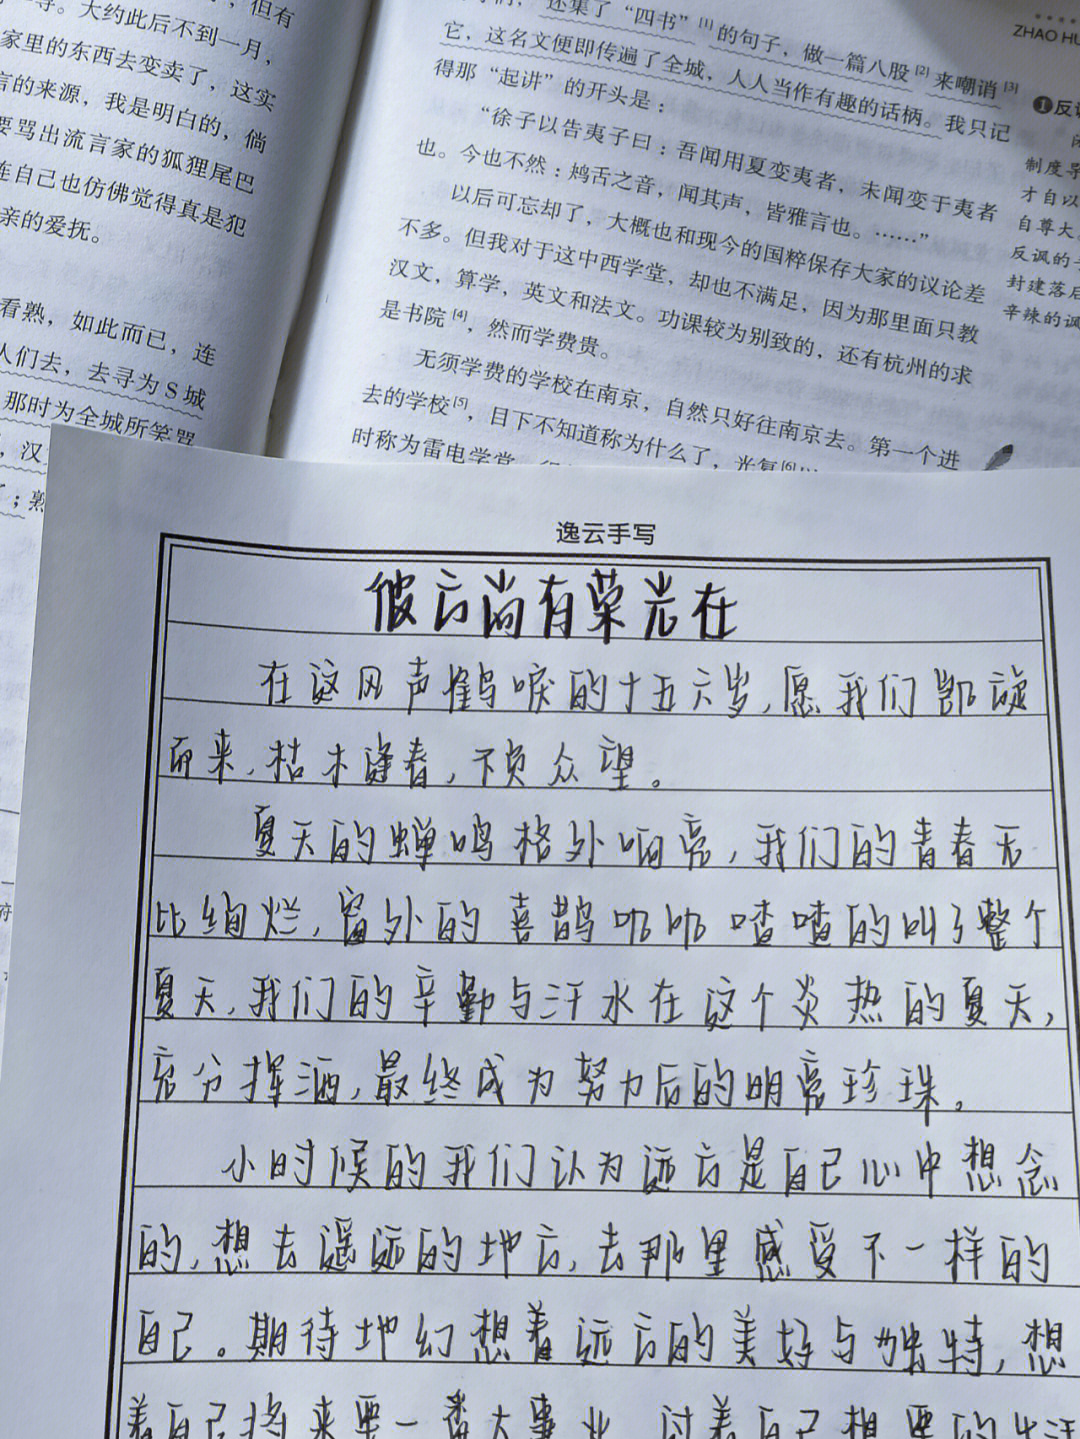 但有
大约此后不到一月，
家里的东西去变卖了，这实
言的来源，我是明白的，倘
要骂出流言家的狐狸尾巴
连自己也仿佛觉得真是犯
亲的爱抚。
看熟，如此而已，连
人们去，去寻为S城
那时为全城所笑骂
，汉
；熟
还集了“四书”[1]的句子，做一篇八股[2]来嘲诮[3]
它，这名文便即传遍了全城，人人当作有趣的话柄。我只记
得那“起讲”的开头是：
“徐子以告夷子曰：吾闻用夏变夷者，未闻变于夷者
也。今也不然：鸩舌之音，闻其声，皆雅言也。……”
以后可忘却了，大概也和现今的国粹保存大家的议论差
不多。但我对于这中西学堂，却也不满足，因为那里面只教
汉文，算学，英文和法文。功课较为别致的，还有杭州的求
是书院[4]，然而学费贵。
无须学费的学校在南京，自然只好往南京去。第一个进
去的学校[5]，目下不知道称为什么了，光复[6]
时称为雷电学堂
ZHAO HU
❶反
制度导
才自以
自尊大
反讽的
封建落后
辛辣的讽
逸云手写
彼方尚有荣光在
在这风声鹤唳的十五六岁，愿我们凯旋
而来，枯木逢春，不负众望。
夏天的蝉鸣格外响亮，我们的青春无
比绚烂，窗外的喜鹊叽叽喳喳的叫了整个
夏天，我们的辛勤与汗水在这个炎热的夏天，
充分挥洒，最终成为努力后的明亮珍珠。
小时候的我们认为远方是自己心中想念
的，想去遥远的地方，去那里感受不一样的
自己。期待地幻想着远方的美好与独特，想
着自己将来要一番大事业，过着自己想要的生活